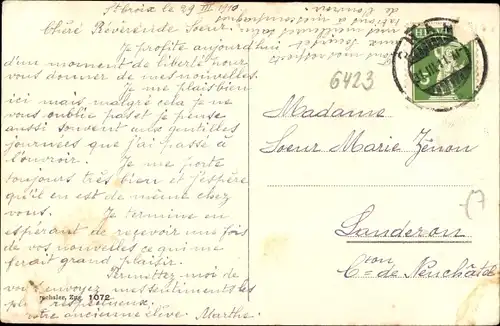 Ste Croix le 29 III 1910
Chère Révérende Soeur
Je profite aujourd'hui
d'un moment de liberté pour
vous donner de mes nouvelles.
Je me plais bien
ici mais malgré cela je ne
vous oublie pas et je pense
aussi souvent aux gentilles
journées que j'ai passé à
l'ouvroir. Je me porte
toujours très bien et j'espère
qu'il en est de même chez
vous. Je termine en
espérant de recevoir une fois
de vos nouvelles ce qui me
ferait grand plaisir.
Permettez-moi de
vous envoyez mes sentiments les
plus respectueux.
votre ancienne élève Marthe.
1072
6423
Madame
Soeur Marie Zénon
Landeron
Cton de Neuchâtel